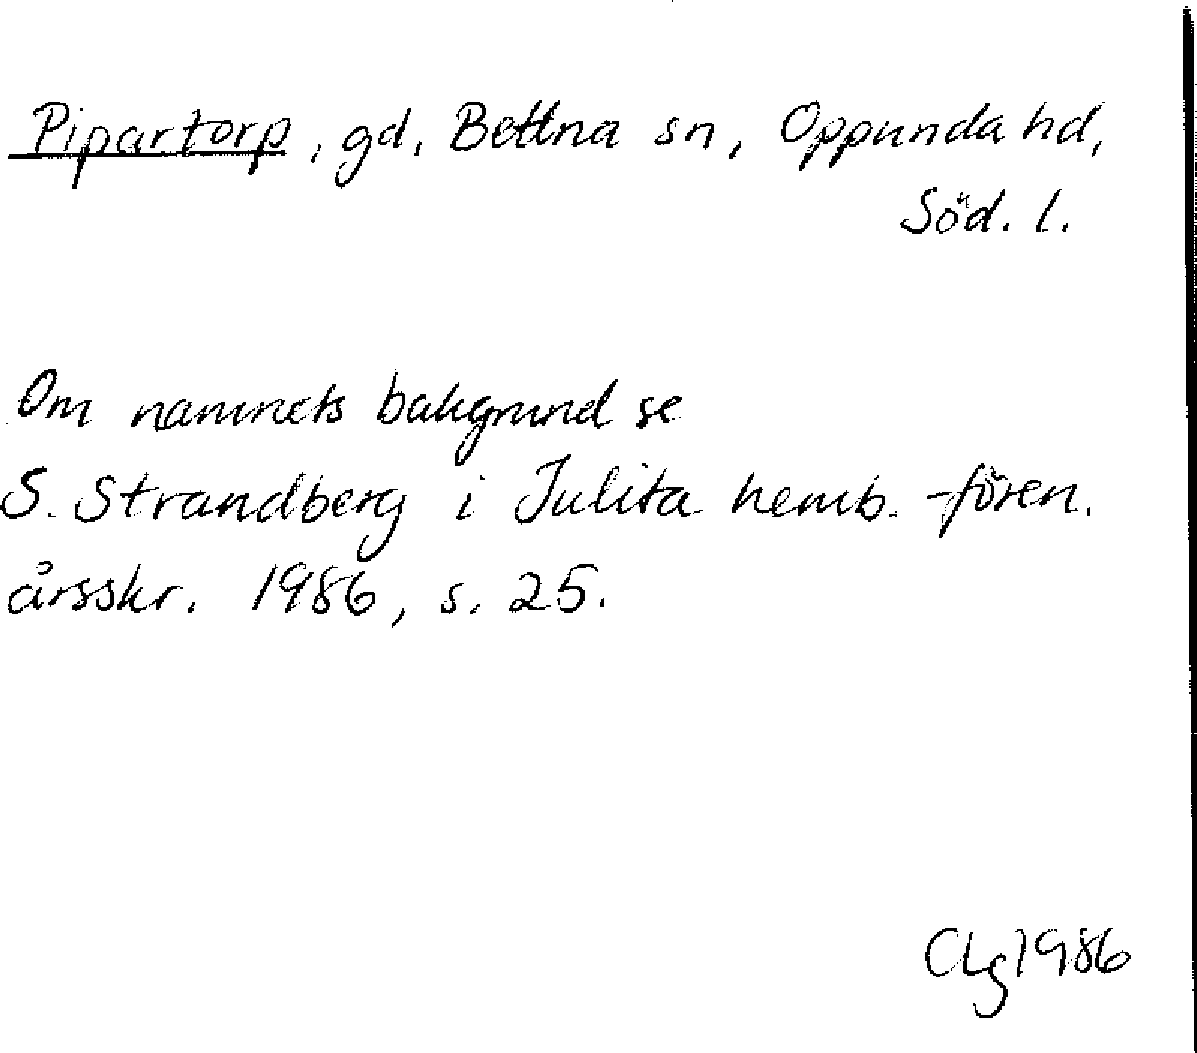 Pipartorp, gd, Bettna sn, Oppunda hd,
Söd. l.
Om namnets bakgrund se
S. Strandberg i Julita hemb.-fören.
årsskr. 1986, s. 25.
CLg 1986